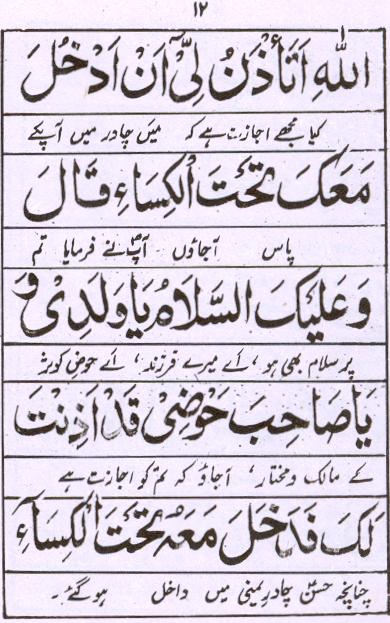 ۱۲
اللّٰهِ اَتَأْذَنُ لِیْٓ اَنْ اَدْخُلَ
کیا مجھے اجازت ہے کہ میں چادر میں آپکے
مَعَكَ تَحْتَ الْكِسَاءِ قَالَ
پاس آجاؤں آپؐ نے فرمایا تم
وَعَلَیْكَ السَّلَامُ یَا وَلَدِیْ وَ
پر سلام بھی ہو، اَے میرے فرزند، اَے حوضِ کوثر
یَا صَاحِبَ حَوْضِیْ قَدْ اَذِنْتُ
کے مالک و مختار، آجاؤ کہ تم کو اجازت ہے
لَكَ فَدَخَلَ مَعَهٗ تَحْتَ الْكِسَآءِ
چنانچہ حسنؑ چادرِ یمنی میں داخل ہو گئے۔